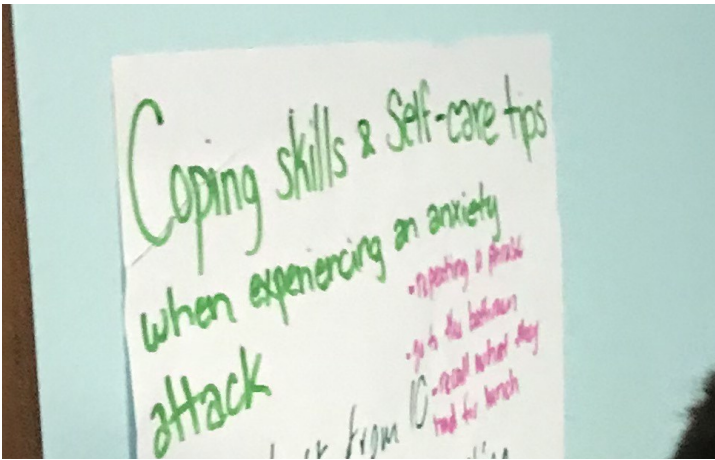 Coping skills & Self-care tips
when experiencing an anxiety
attack
- repeating a phrase
- go to the bathroom
- recall what they
had for lunch
from 10